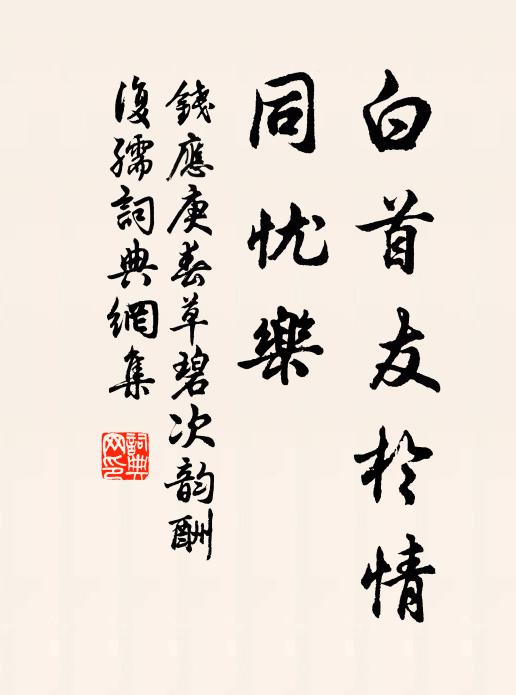 白首友於情
同忧樂
錢應庚春草碧次韵酬
復孺詞典網集
詞典
网印